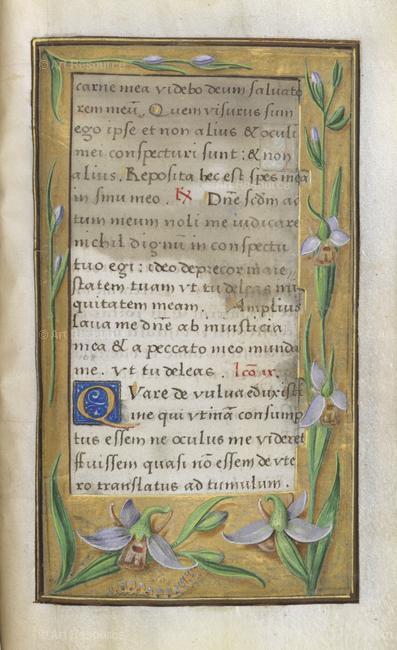 © Art Resource
carne mea videbo deum saluato
rem meū. Quem visurus sum
ego ipse et non alius & oculi
mei conspecturi sunt: & non
alius. Reposita hec est spes mea
in sinu meo. ℟ Dn̄e scdm ac
tum meum noli me iudicare
nichil dignū in conspectu
tuo egi: ideo deprecor maie
statem tuam vt tu deleas ini
quitatem meam. Amplius
laua me dn̄e ab iniusticia
mea & a peccato meo munda
me. vt tu deleas. lcō ix.
Quare de vulua eduxisti
me qui vtinā consump
tus essem ne oculus me videret
ffuissem quasi nō essem de vte
ro translatus ad tumulum.